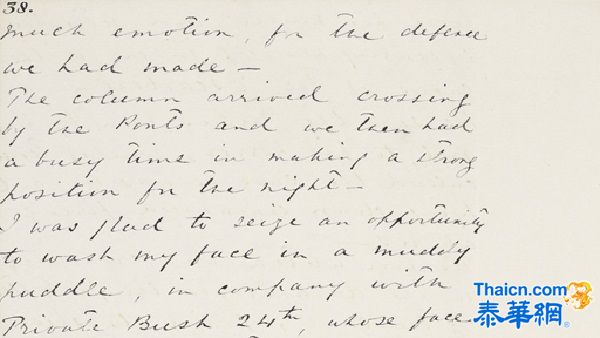 38.
much emotion, for the defence
we had made —
The column arrived crossing
by the Ponts and we then had
a busy time in making a strong
position for the night —
I was glad to seize an opportunity
to wash my face in a muddy
puddle, in company with
Private Bush 24th, whose face
Thaicn.com
泰華網